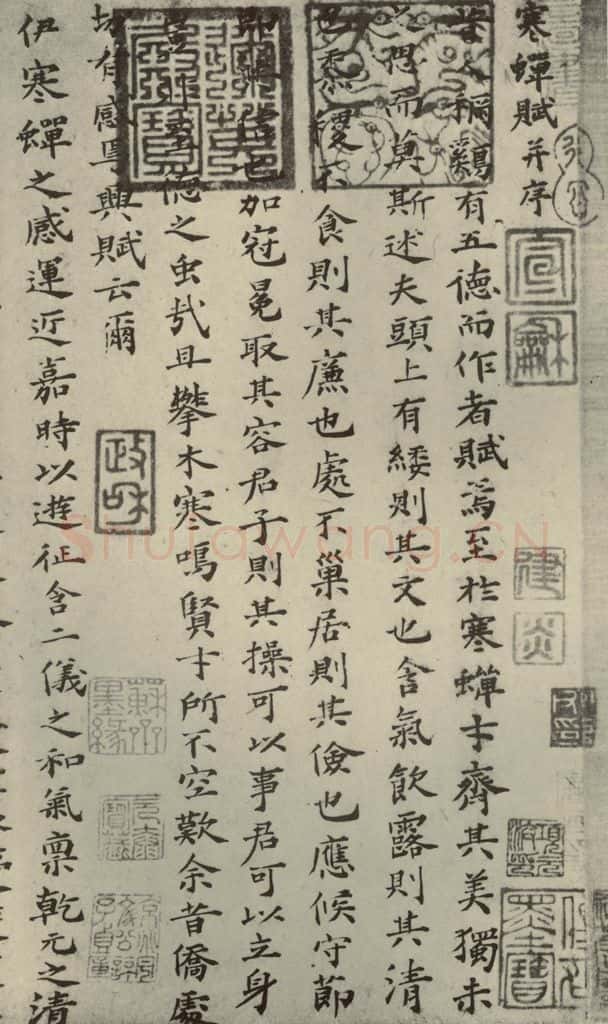 寒蟬賦并序
昔人稱鷄有五德而作者賦焉至於寒蟬才齊其美獨未
之思而莫斯述夫頭上有緌則其文也含氣飲露則其清
也黍稷不食則其廉也處不巢居則其儉也應候守節
即其信也加冠冕取其容君子則其操可以事君可以立身
豈非至德之虫哉且攀木寒鳴賢才所不空歎余昔僑處
切有感焉興賦云爾
伊寒蟬之感運近嘉時以遊征含二儀之和氣稟乾元之清
宣龢
政和
建炎
Shufawang.CN